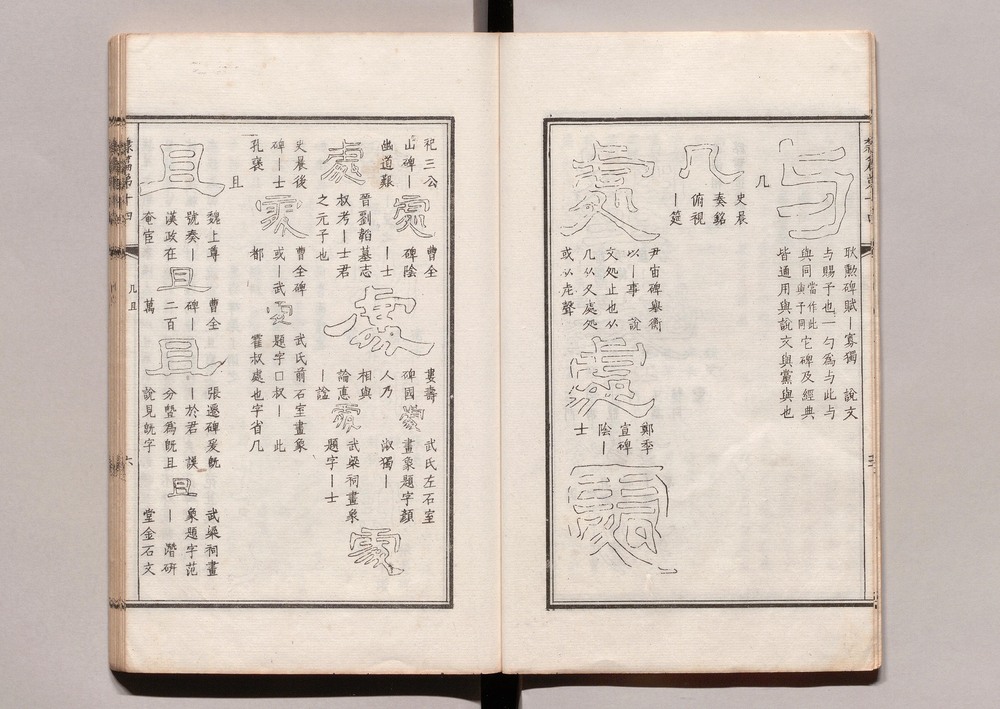 与
耿勲碑賦｜寡獨　說文
与賜予也一勺為与此与
與同當作此與予同它碑及經典
皆通用與說文與黨與也
几
几
史晨
奏銘
俯視
｜筵
處
尹宙碑舉衡
以｜事　說
文処止也从
几从夂處処
或从虍聲
處
鄭季
宣碑
陰｜
士
處
祀三公
山碑｜
幽道艱
處
曹全
碑陰
｜士
晉劉韜墓志
叔考｜士君
之元子也
處
婁壽
碑國
人乃
相與
論悳
｜諡
處
武氏左石室
畫象題字顏
淑獨｜
處
武梁祠畫象
題字｜士
處
史晨後
碑｜士
孔褒
處
曹全碑
或｜武
都
處
武氏前石室畫象
題字口叔｜此
霍叔處也字省几
且
且
魏上尊
號奏｜
漢政在
奄宦
且
曹全
碑｜
二百
萬
且
張遷碑爰旣
｜於君　誤
分暨為旣且
說見旣字
且
武梁祠畫
象題字范
｜　潛研
堂金石文
隸篇第十四
几且
六